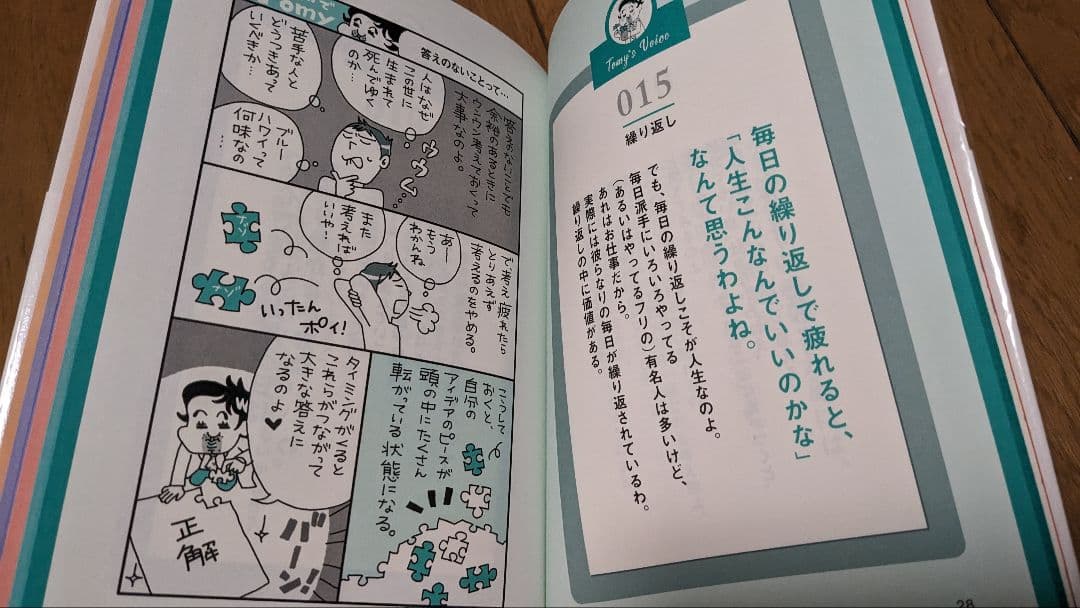 Tomy
答えのないことって…
人はなぜ
この世に
生まれて
死んでゆく
のか…
苦手な人と
どうつきあって
いくべきか…
ブルー
ハワイって
何味なの
…
ウウム…
答えのないことて
余裕のあるときに
ウンウン考えておくって
大事なのよ。
で考え疲れたら
とりあえず
考えるのをやめる。
あー
もう
わかんね
また
考えれば
いいや…
ナゾ
ナゾ
いったん
ポイ!
こうして
おくと、
自分の
アイデアのピースが
頭の中にたくさん
転がっている状態になる。
タイミングがくると
これらがつながって
大きな答えに
なるのよ♥
正解
バーン!
Tomy's Voice
015
繰り返し
毎日の繰り返しで疲れると、
「人生こんなんでいいのかな」
なんて思うわよね。
でも、毎日の繰り返しこそが人生なのよ。
毎日派手にいろいろやってる
(あるいはやってるフリの)有名人は多いけど、
あれはお仕事だから。
実際には彼らなりの毎日が繰り返されているわ。
繰り返しの中に価値がある。
28